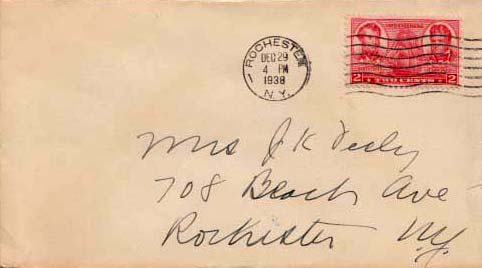 ROCHESTER
DEC 29
4 PM
1938
N.Y.
2 TWO CENTS 2
Mrs J K
708 Beach Ave
Rochester N.Y.